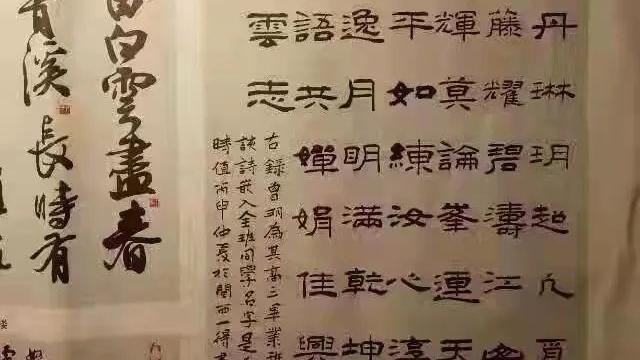 丹琳玥起凡覓
藤耀碧濤江
輝莫論峯運天
平如練汝心淳
逸月明滿乾坤
語共嬋娟佳興
雲志
古錄曾羽為其高三畢業班
談詩嵌入全班同學名字是
時值丙申仲夏於閩西一得
白雲盡春
青溪長時有